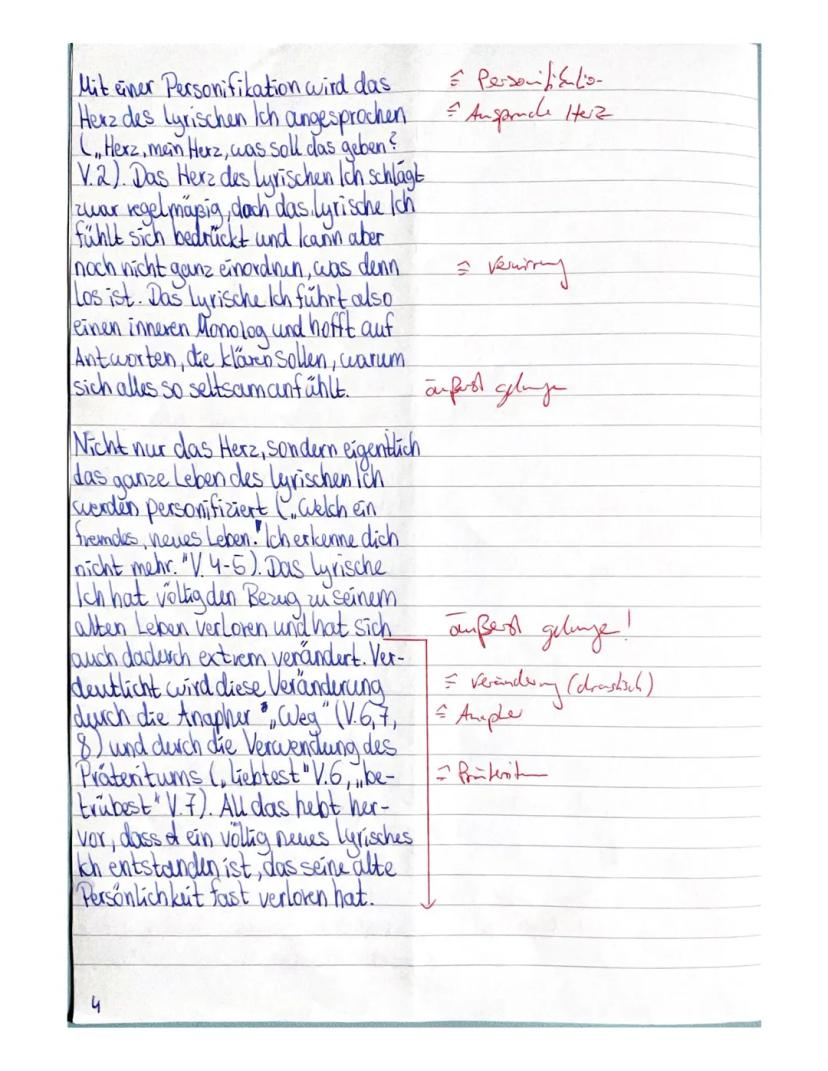 Mit einer Personifikation wird das
Herz des lyrischen Ich angesprochen
(„Herz, mein Herz, was soll das geben?
V.2). Das Herz des lyrischen Ich schlägt
zwar regelmäßig, doch das lyrische Ich
fühlt sich bedrückt und kann aber
noch nicht ganz einordnen, was denn
los ist. Das lyrische Ich führt also
einen inneren Monolog und hofft auf
Antworten, die klären sollen, warum
sich alles so seltsam anfühlt.
Nicht nur das Herz, sondern eigentlich
das ganze Leben des lyrischen Ich
werden personifiziert („Welch ein
fremdes, neues Leben! Ich erkenne dich
nicht mehr." V.4-5). Das lyrische
Ich hat völlig den Bezug zu seinem
alten Leben verloren und hat sich
auch dadurch extrem verändert. Ver-
deutlicht wird diese Veränderung
durch die Anapher „Weg" (V.6,7,
8) und durch die Verwendung des
Präteritums („liebtest" V.6, „be-
trübest" V.7). All das hebt her-
vor, dass ein völlig neues lyrisches
Ich entstanden ist, das seine alte
Persönlichkeit fast verloren hat.
4
Personifikation
Ansprache Herz
Verwirrung
äußerst gelungen
äußerst gelungen!
Veränderung (drastisch)
Anapher
Präteritum